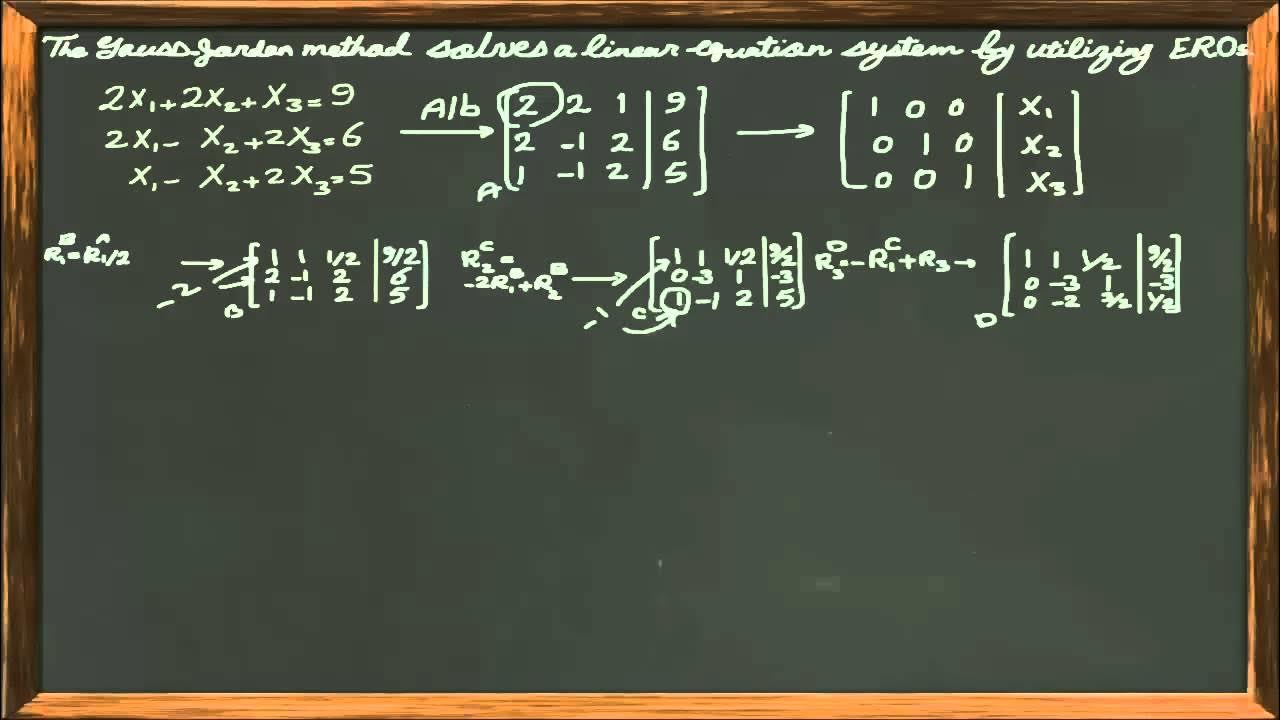 The Gauss-Jordan method solves a linear equation system by utilizing EROs
2X₁+2X₂+X₃=9
2X₁- X₂+2X₃=6
X₁- X₂+2X₃=5
A/b
2 2 1 | 9
2 -1 2 | 6
1 -1 2 | 5
A
1 0 0 | X₁
0 1 0 | X₂
0 0 1 | X₃
R₁ᴮ=R₁ᴬ/2
1 1 1/2 | 9/2
2 -1 2 | 6
1 -1 2 | 5
-2
B
R₂ᶜ=
-2R₁ᴮ+R₂ᴮ
1 1 1/2 | 9/2
0 -3 1 | -3
1 -1 2 | 5
-1
C
R₃ᴰ=-R₁ᶜ+R₃
1 1 1/2 | 9/2
0 -3 1 | -3
0 -2 3/2 | 1/2
D